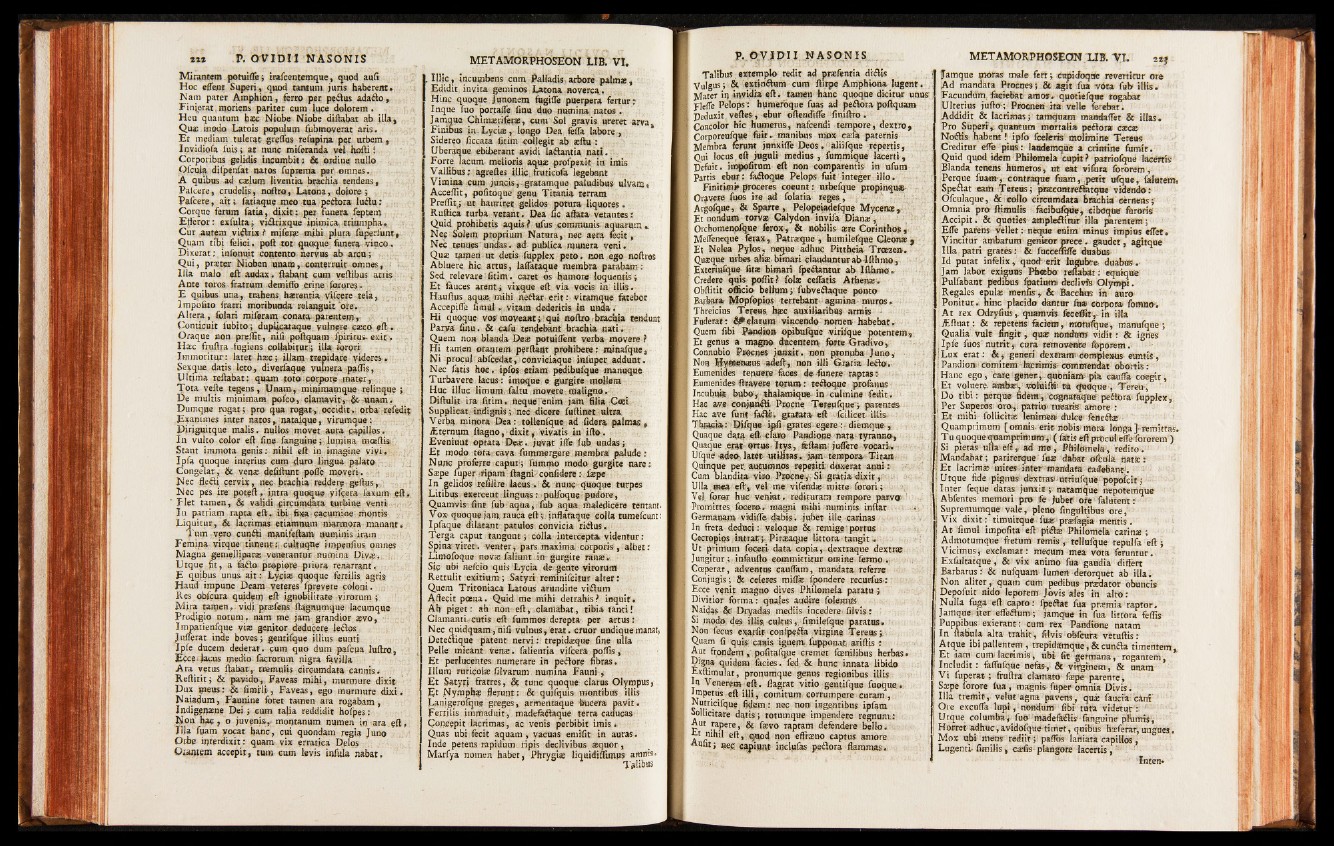 222 P. OVIDII NASONIS
Mirantem potuisse; irascentemque, quod ausi
Hoc essent Superi, quod tantum juris haberent.
Nam pater Amphion, ferro per pectus adacto,
Finierat moriens pariter cum luce dolorem.
Heu quantum hæc Niobe Niobe distabat ab illa,
Quæ modo Latois populum submoverat aris.
Et mediam tulerat gressus resupina per urbem,
Invidiosa suis; at nunc miseranda vel hosti!
Corporibus gelidis incumbit: & ordine nullo
Oscula dispensat natos suprema per omnes.
A quibus ad cælum liventia brachia tendens,
Pascere, crudelis, nostro, Latona, dolore;
Pascere, ait; satiaque meo tua pectora luctu:
Corque ferum satia, dixit: per funera septem
Efferor: exsulta; victrixque inimica triumpha.
Cur autem victrix? miseræ mihi plura supersunt,
Quam tibi felici. post tot quoque funera vinco.
Dixerat: insonuit contento nervus ab arcu;
Qui, præter Nioben unam, conterruit omnes.
Illa malo est audax. stabant cum vestibus atris
Ante toros fratrum demisso crine sorores.
E quibus una, trahens hærentia viscere tela,
Imposito fratri moribunda relanguit ore.
Altera, solari miseram conata parentem,
Conticuit subito; duplicataque vulnere cæco est.
Oraque non pressit, nisi postquam spiritus exit.
Hæc frustra fugiens collabitur; illa sorori
Immoritur: latet hæc; illam trepidare videres.
Sexque datis leto, diversaque vulnera passis,
Ultima restabat: quam toto corpore mater,
Tota veste tegens, Unam, minimamque relinque;
De multis minimam posco, clamavit, & unam.
Dumque rogat; pro qua rogat, occidit. orba resedit
Exanimes inter natos, natasque, virumque:
Diriguitque malis. nullos movet aura capillos.
In vultu color est sine sanguine; lumina mœstis
Stant immota genis: nihil est in imagine vivi.
Ipsa quoque interius cum duro lingua palato
Congelat, & venæ desistunt posse moveri.
Nec flecti cervix, nec brachia reddere gestus,
Nec pes ire potest. intra quoque viscera saxum est.
Flet tamen, & validi circumdata turbine venti
In patriam rapta est. ibi fixa cacumine montis
Liquitur, & lacrimas etiamnum marmora manant.
Tum vero cuncti manifestam numinis iram
Femina virque timent: cultuque impensius omnes
Magna gemelliparæ venerantur numina Divæ.
Utque fit, a facto propiore priora renarrant.
E quibus unus ait: Lyciæ quoque fertilis agris
Haud impune Deam veteres sprevere coloni.
Res obscura quidem est ignobilitate virorum;
Mira tamen. vidi præsens stagnumque lacumque
Prodigio notum. nam me jam grandior ævo,
Impatiensque viæ genitor deducere lectos
Jusserat inde boves; gentisque illius eunti
Ipse ducem dederat. cum quo dum pascua lustro,
Ecce lacus medio sacrorum nigra favilla
Ara vetus stabat, tremulis circumdata cannis.
Restitit; & pavido, Faveas mihi, murmure dixit
Dux meus: & simili, Faveas, ego murmure dixi.
Naiadum, Faunine foret tamen ara rogabam,
Indigenæne Dei; cum talia reddidit hospes:
Non hac, o juvenis, montanum numen in ara est.
Illa suam vocat hanc, cui quondam regia Juno
Orbe interdixit: quam vix erratica Delos
Orantem accepit, tum cum levis insula nabat.
METAMORPHOSEON LIB. VI.
Illic, incumbens cum Palladis arbore palmæ,
Edidit invita geminos Latona noverca.
Hinc quoque Junonem fugisse puerpera fertur:
Inque suo portasse sinu duo numina natos.
Jamque Chimæriferæ, cum Sol gravis ureret arva,
Finibus in Lyciæ, longo Dea fessa labore,
Sidereo siccata sitim collegit ab æstu:
Uberaque ebiberant avidi lactantia nati.
Forte lacum melioris aquæ prospexit in imis
Vallibus: agrestes illic fruticosa legebant
Vimina cum juncis, gratamque paludibus ulvam,
Accessit, positoque genu Titania terram
Pressit; ut hauriret gelidos potura liquores.
Rustica turba vetant. Dea sic affata vetantes:
Quid prohibetis aquis? usus communis aquarum.
Nec Solem proprium Natura, nec aera fecit,
Nec tenues undas. ad publica munera veni.
Quæ tamen ut detis supplex peto. non ego nostros
Abluere hic artus, lassataque membra parabam:
Sed relevare sitim. caret os humore loquentis;
Et fauces arent, vixque est via vocis in illis.
Haustus aquæ, mihi nectar erit: vitamque fatebor
Accepisse simul. vitam dederitis in unda.
Hi quoque vos moveant; qui nostro brachia tendunt
Parva sinu. & casu tendebant brachia nati.
Quem non blanda Deæ potuissent verba movere?
Hi tamen orantem perstant prohibere: minasque,
Ni procul abscedat, conviciaque insuper addunt.
Nec satis hoc. ipsos etiam pedibusque manuque
Turbavere lacus: imoque e gurgite mollem
Huc illuc limum saltu movere maligno.
Distulit ira sitim. neque enim jam filia Cœi
Supplicat indignis; nec dicere sustinet ultra
Verba minora Dea: tollensque ad sidera palmas,
Æternum stagno, dixit, vivatis in isto.
Eveniunt optata Deæ. juvat isse sub undas;
Et modo tota cava summergere membra palude:
Nunc proferre caput; summo modo gurgite nare:
Sæpe super ripam stagni considere: sæpe
In gelidos resilire lacus. & nunc quoque turpes
Litibus exercent linguas: pulsoque pudore,
Quamvis sint sub aqua, sub aqua maledicere tentant.
Vox quoque jam rauca est; inflataque colla tumescunt:
Ipsaque dilatant patulos convicia rictus.
Terga caput tangunt; colla intercepta videntur:
Spina viret. venter, pars maxima corporis, albet:
Limosoque novæ saliunt in gurgite ranæ.
Sic ubi nescio quis Lycia de gente virorum
Rettulit exitium; Satyri reminiscitur alter:
Quem Tritoniaca Latous arundine victum
Affecit pœna. Quid me mihi detrahis? inquit.
Ah piget: ah non est, clamabat, tibia tanti!
Clamanti cutis est summos derepta per artus:
Nec quidquam, nisi vulnus, erat. cruor undique manat,
Detectique patent nervi: trepidæque sine ulla
Pelle micant venæ. salientia viscera possis,
Et perlucentes numerare in pectore fibras.
Illum ruricolæ silvarum numina Fauni,
Et Satyri fratres, & tunc quoque clarus Olympus,
Et Nymphæ flerunt: & quisquis montibus illis
Lanigerosque greges, armentaque bucera pavit.
Fertilis immaduit, madefactaque terra caducas
Concepit lacrimas, ac venis perbibit imis.
Quas ubi fecit aquam, vacuas emisit in auras.
Inde petens rapidum ripis declivibus æquor,
Marsya nomen habet, Phrygiæ liquidissimus amnis.
Talibus
P. OVIDII NASONIS
Talibus extemplo redit ad præsentia dictis
Vulgus; & extinctum cum stirpe Amphiona lugent.
Mater in invidia est. tamen hanc quoque dicitur unus
Flesse Pelops: humeroque suas ad pectora postquam
Deduxit vestes, ebur ostendisse sinistro.
Concolor hic humerus, nascendi tempore, dextro,
Corporeusque fuit. manibus mox cæsa paternis
Membra ferunt junxisse Deos. aliisque repertis,
Qui locus est juguli medius, summique lacerti,
Defuit. impositum est non comparentis in usum
Partis ebur: factoque Pelops fuit integer illo.
Finitimi proceres coeunt: urbesque propinquæ
Oravere suos ire ad solatia reges,
Argosque, & Sparte, Pelopeiadesque Mycenæ,
Et nondum torvæ Calydon invisa Dianæ,
Orchomenosque ferox, & nobilis ære Corinthos,
Messeneque ferax, Patræque, humilesque Cleonæ,
Et Nelea Pylos, neque adhuc Pittheia Trœzen.
Quæque urbes aliæ bimari clauduntur ab Isthmo,
Exteriusque sitæ bimari spectantur ab Isthmo.
Credere quis possit? solæ cessatis Athenæ.
Obstitit officio bellum; subvectaque ponto
Barbara Mopsopios terrebant agmina muros.
Threicius Tereus hæc auxiliaribus armis
Fuderat: & clarum vincendo nomen habebat.
Quem sibi Pandion opibusque virisque potentem,
Et genus a magno ducentem forte Gradivo,
Connubio Procnes junxit. non pronuba Juno,
Non Hymenæus adest, non illi Gratia lecto.
Eumenides tenuere faces de funere raptas:
Eumenides stravere torum: tectoque profanus
Incubuit bubo, thalamique in culmine sedit.
Hac ave conjuncti Procne Tereusque; parentes
Hac ave sunt facti. gratata est scilicet illis
Thracia: Disque ipsi grates egere: diemque,
Quaque data est claro Pandione nata tyranno,
Quaque erat ortus Itys, festam jussere vocari.
Usque adeo latet utilitas. jam tempora Titan
Quinque per autumnos repetiti duxerat anni:
Cum blandita viro Procne, Si gratia dixit,
Ulla mea est, vel me visendæ mitte sorori;
Vel soror huc veniat. redituram tempore parvo
Promittes socero. magni mihi numinis instar
Germanam vidisse dabis. jubet ille carinas
In freta deduci: veloque & remige portus
Cecropios intrat; Piræaque littora tangit.
Ut primum soceri data copia, dextraque dextræ
Jungitur; infausto committitur omine sermo.
Cœperat, adventus caussam, mandata referre
Conjugis; & celeres missæ spondere recursus:
Ecce venit magno dives Philomela paratu;
Divitior forma: quales audire solemus
Naidas & Dryadas mediis incedere silvis:
Si modo des illis cultus, similesque paratus.
Non secus exarsit conspecta virgine Tereus;
Quam si quis canis ignem supponat aristis:
Aut frondem, positasque cremet fœnilibus herbas.
Digna quidem facies. sed & hunc innata libido
Exstimulat, pronumque genus regionibus illis
In Venerem est. flagrat vitio gentisque suoque.
Impetus est illi, comitum corrumpere curam,
Nutricisque fidem: nec non ingentibus ipsam
Sollicitare datis; totumque impendere regnum:
Aut rapere, & sævo raptam defendere bello.
Et nihil est, quod non effræno captus amore
Ausit; nec capiunt inclusas pectora flammas.
METAMORPHOSEON LIB. VI. 223
Jamque moras male fert; cupidoque revertitur ore
Ad mandata Procnes; & agit sua vota sub illis.
Facundum faciebat amor. quotiesque rogabat
Ulterius justo; Procnen ita velle ferebat.
Addidit & lacrimas; tamquam mandasset & illas.
Pro Superi, quantum mortalia pectora cæcæ
Noctis habent! ipso sceleris molimine Tereus
Creditur esse pius: laudemque a crimine sumit.
Quid quod idem Philomela cupit? patriosque lacertis
Blanda tenens humeros, ut eat visura sororem,
Perque suam, contraque suam, petit usque, salutem.
Spectat eam Tereus; præcontrectatque videndo:
Osculaque, & collo circumdata brachia cernens;
Omnia pro stimulis facibusque, ciboque furoris
Accipit. & quoties amplectitur illa parentem;
Esse parens vellet: neque enim minus impius esset.
Vincitur ambarum genitor prece. gaudet, agitque
Illa patri grates: & successisse duabus
Id putat infelix, quod erit lugubre duabus.
Jam labor exiguus Phœbo restabat: equique
Pulsabant pedibus spatium declivis Olympi.
Regales epulæ mensis, & Bacchus in auro
Ponitur. hinc placido dantur sua corpora somno.
At rex Odrysius, quamvis secessit, in illa
Æstuat: & repetens faciem, motusque, manusque;
Qualia vult fingit, quæ nondum vidit: & ignes
Ipse suos nutrit, cura removente soporem.
Lux erat: &, generi dextram complexus euntis,
Pandion comitem lacrimis commendat obortis:
Hanc ego, care gener, quoniam pia caussa coegit,
Et voluere ambæ, voluisti tu quoque, Tereu,
Do tibi: perque fidem, cognataque pectora supplex,
Per Superos oro, patrio tuearis amore:
Et mihi sollicitæ lenimen dulce senectæ
Quamprimum [omnis erit nobis mora longa] remittas.
Tu quoque quamprimum, (satis est procul esse sororem)
Si pietas ulla est, ad me, Philomela, redito.
Mandabat; pariterque suæ dabat oscula natæ:
Et lacrimæ mites inter mandata cadebant.
Utque fide pignus dextras utriusque poposcit;
Inter seque datas junxit; natamque nepotemque
Absentes memori pro se jubet ore salutent:
Supremumque vale, pleno singultibus ore,
Vix dixit: timuitque suæ præsagia mentis.
At simul imposita est pictæ Philomela carinæ;
Admotumque fretum remis, tellusque repulsa est;
Vicimus, exclamat: mecum mea vota feruntur.
Exsultatque, & vix animo sua gaudia differt
Barbarus: & nusquam lumen detorquet ab illa.
Non aliter, quam cum pedibus prædator obuncis
Deposuit nido leporem Jovis ales in alto:
Nulla fuga est capto: spectat sua præmia raptor.
Jamque iter effectum; jamque in sua littora fessis
Puppibus exierant: cum rex Pandione natam
In stabula alta trahit, silvis obscura vetustis:
Atque ibi pallentem, trepidamque, & cuncta timentem,
Et iam cum lacrimis, ubi sit germana, rogantem,
Includit: fassusque nefas, & virginem, & unam
Vi superat; frustra clamato sæpe parente,
Sæpe sorore sua, magnis super omnia Divis.
Illa tremit, velut agna pavens, quæ saucia cani
Ore excussa lupi, nondum sibi tuta videtur:
Utque columba, suo madefactis sanguine plumis,
Horret adhuc, avidosque timet, quibus hæserat, ungues.
Mox ubi mens rediit; passos laniata capillos,
Lugenti similis, cæsis plangore lacertis,
Inten-